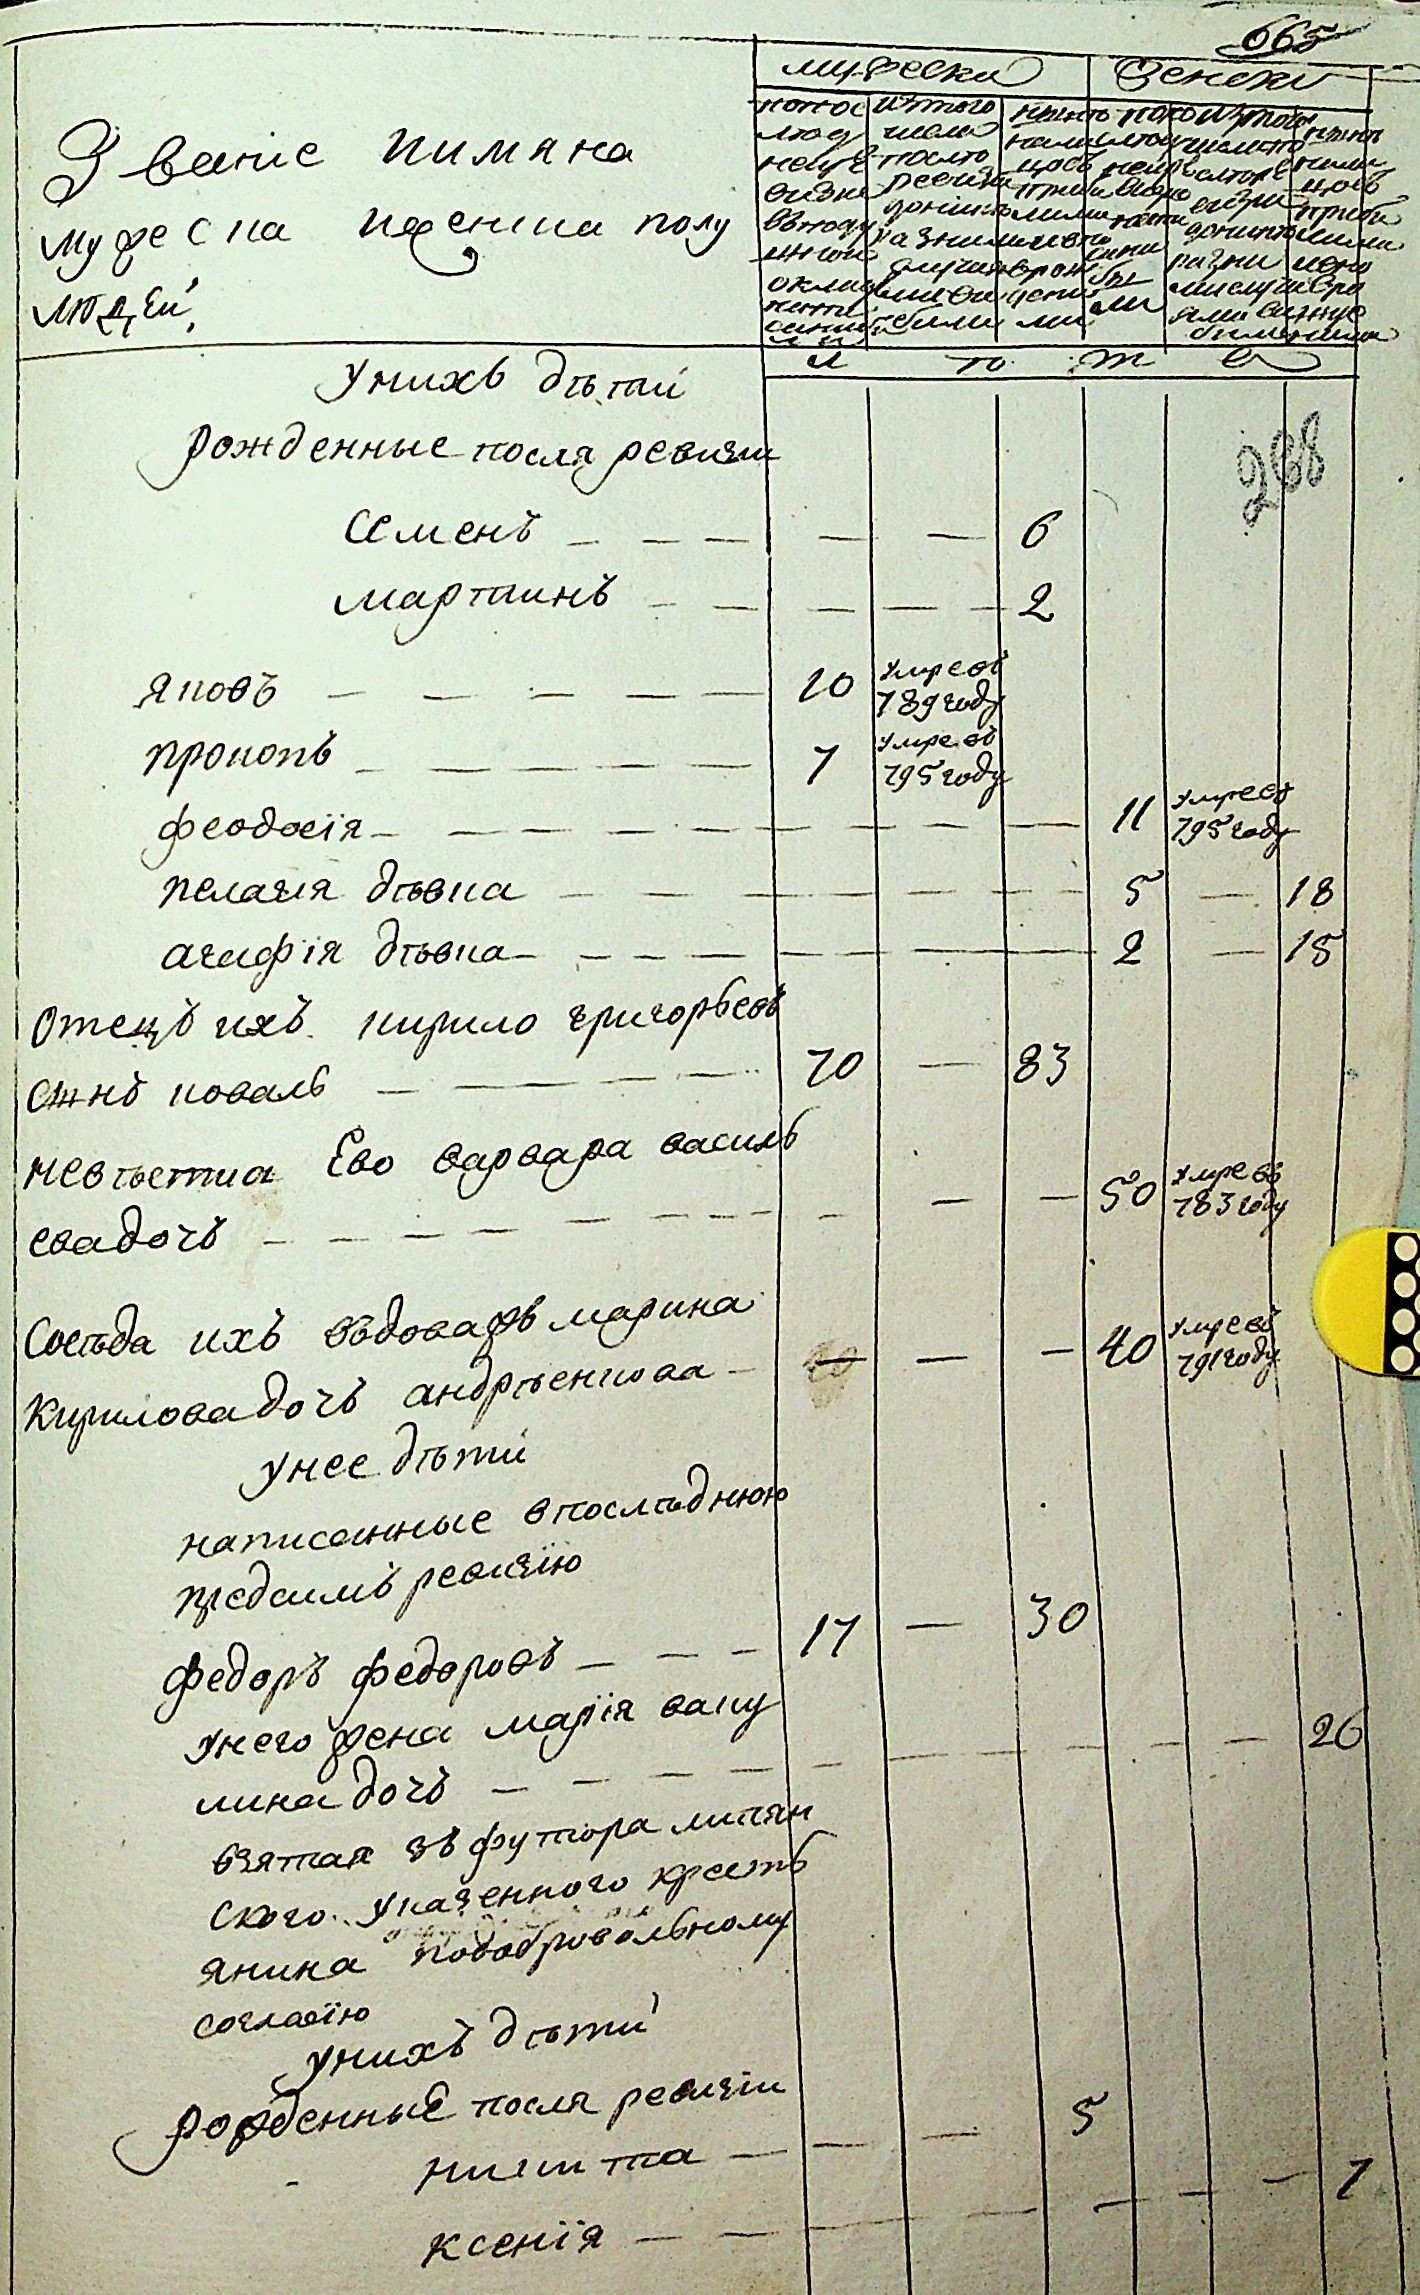 665
мужеска женска
Званіе имяна
мужеска иженска полу
людей,
л ѣ т а
268
унихъ дѣти
рожденные посля ревизіи
Семенъ — — — — — 6
мартинъ — — — — — 2
яковъ — — — — — 10 умре въ 789 году
прокопъ — — — — — 7 умре въ 795 году
феодосія — — — — — 11 умре въ 795 году
пелагія дѣвка — — — — — 5 — 18
агафія дѣвка — — — — — 2 — 15
Отецъ ихъ кирило григорьевъ
сынъ коваль — — — — 70 — 83
невѣстка Ево варвара василь
ева дочъ — — — — — 50 умре въ 783 году
Сосѣда ихъ вдова марина
Кирилова дочъ андрѣенкова — — — — 40 умре въ 791 году
унее дѣти
написанные впослѣднюю
предсимъ ревизію
федоръ федоровъ — — — 17 — 30
унего жена марія ваку
лина дочъ — — — — — 26
взятая зъ футора липян
ского указенного кресть
янина подобровольному
согласію
унихъ дѣти
рожденные посля ревизіи
никита — — — 5
ксенія — — — — — 7